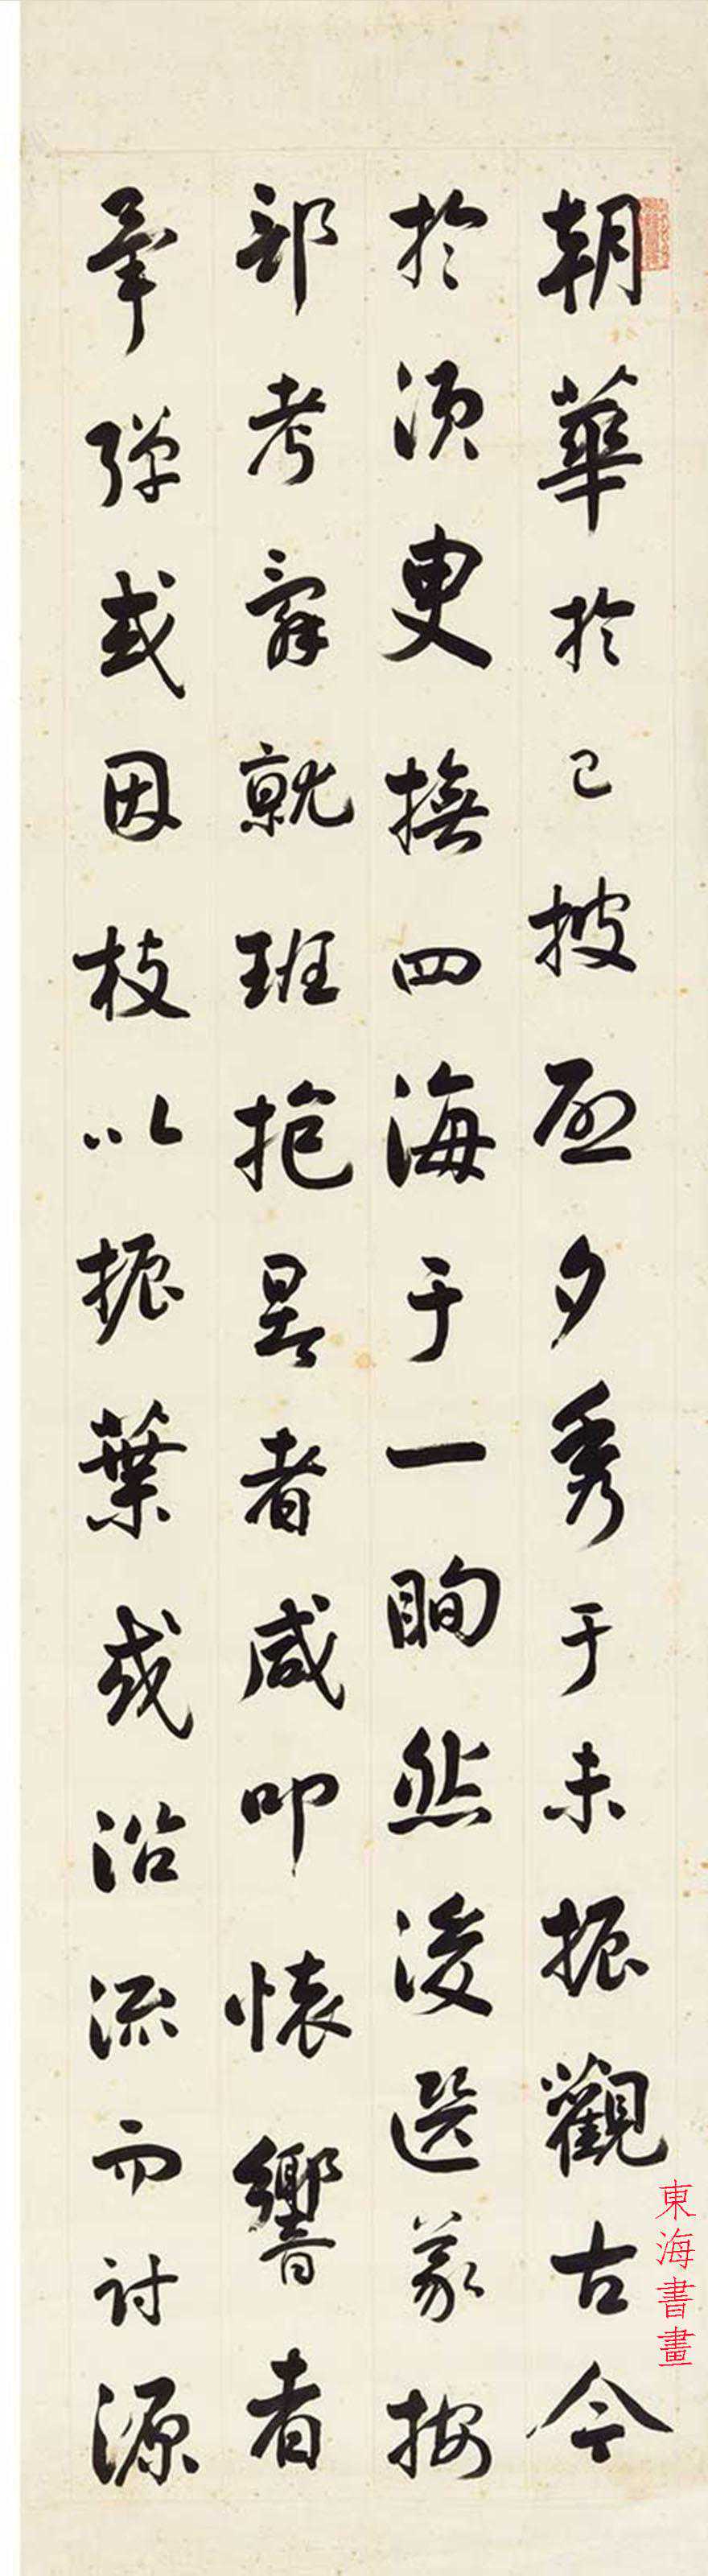 朝華於已披啟夕秀于未振觀古今
於須臾撫四海于一眴然後選義按
部考辭就班抱景者咸叩懷響者
畢彈或因枝以振葉或沿流而討源
東海書畫